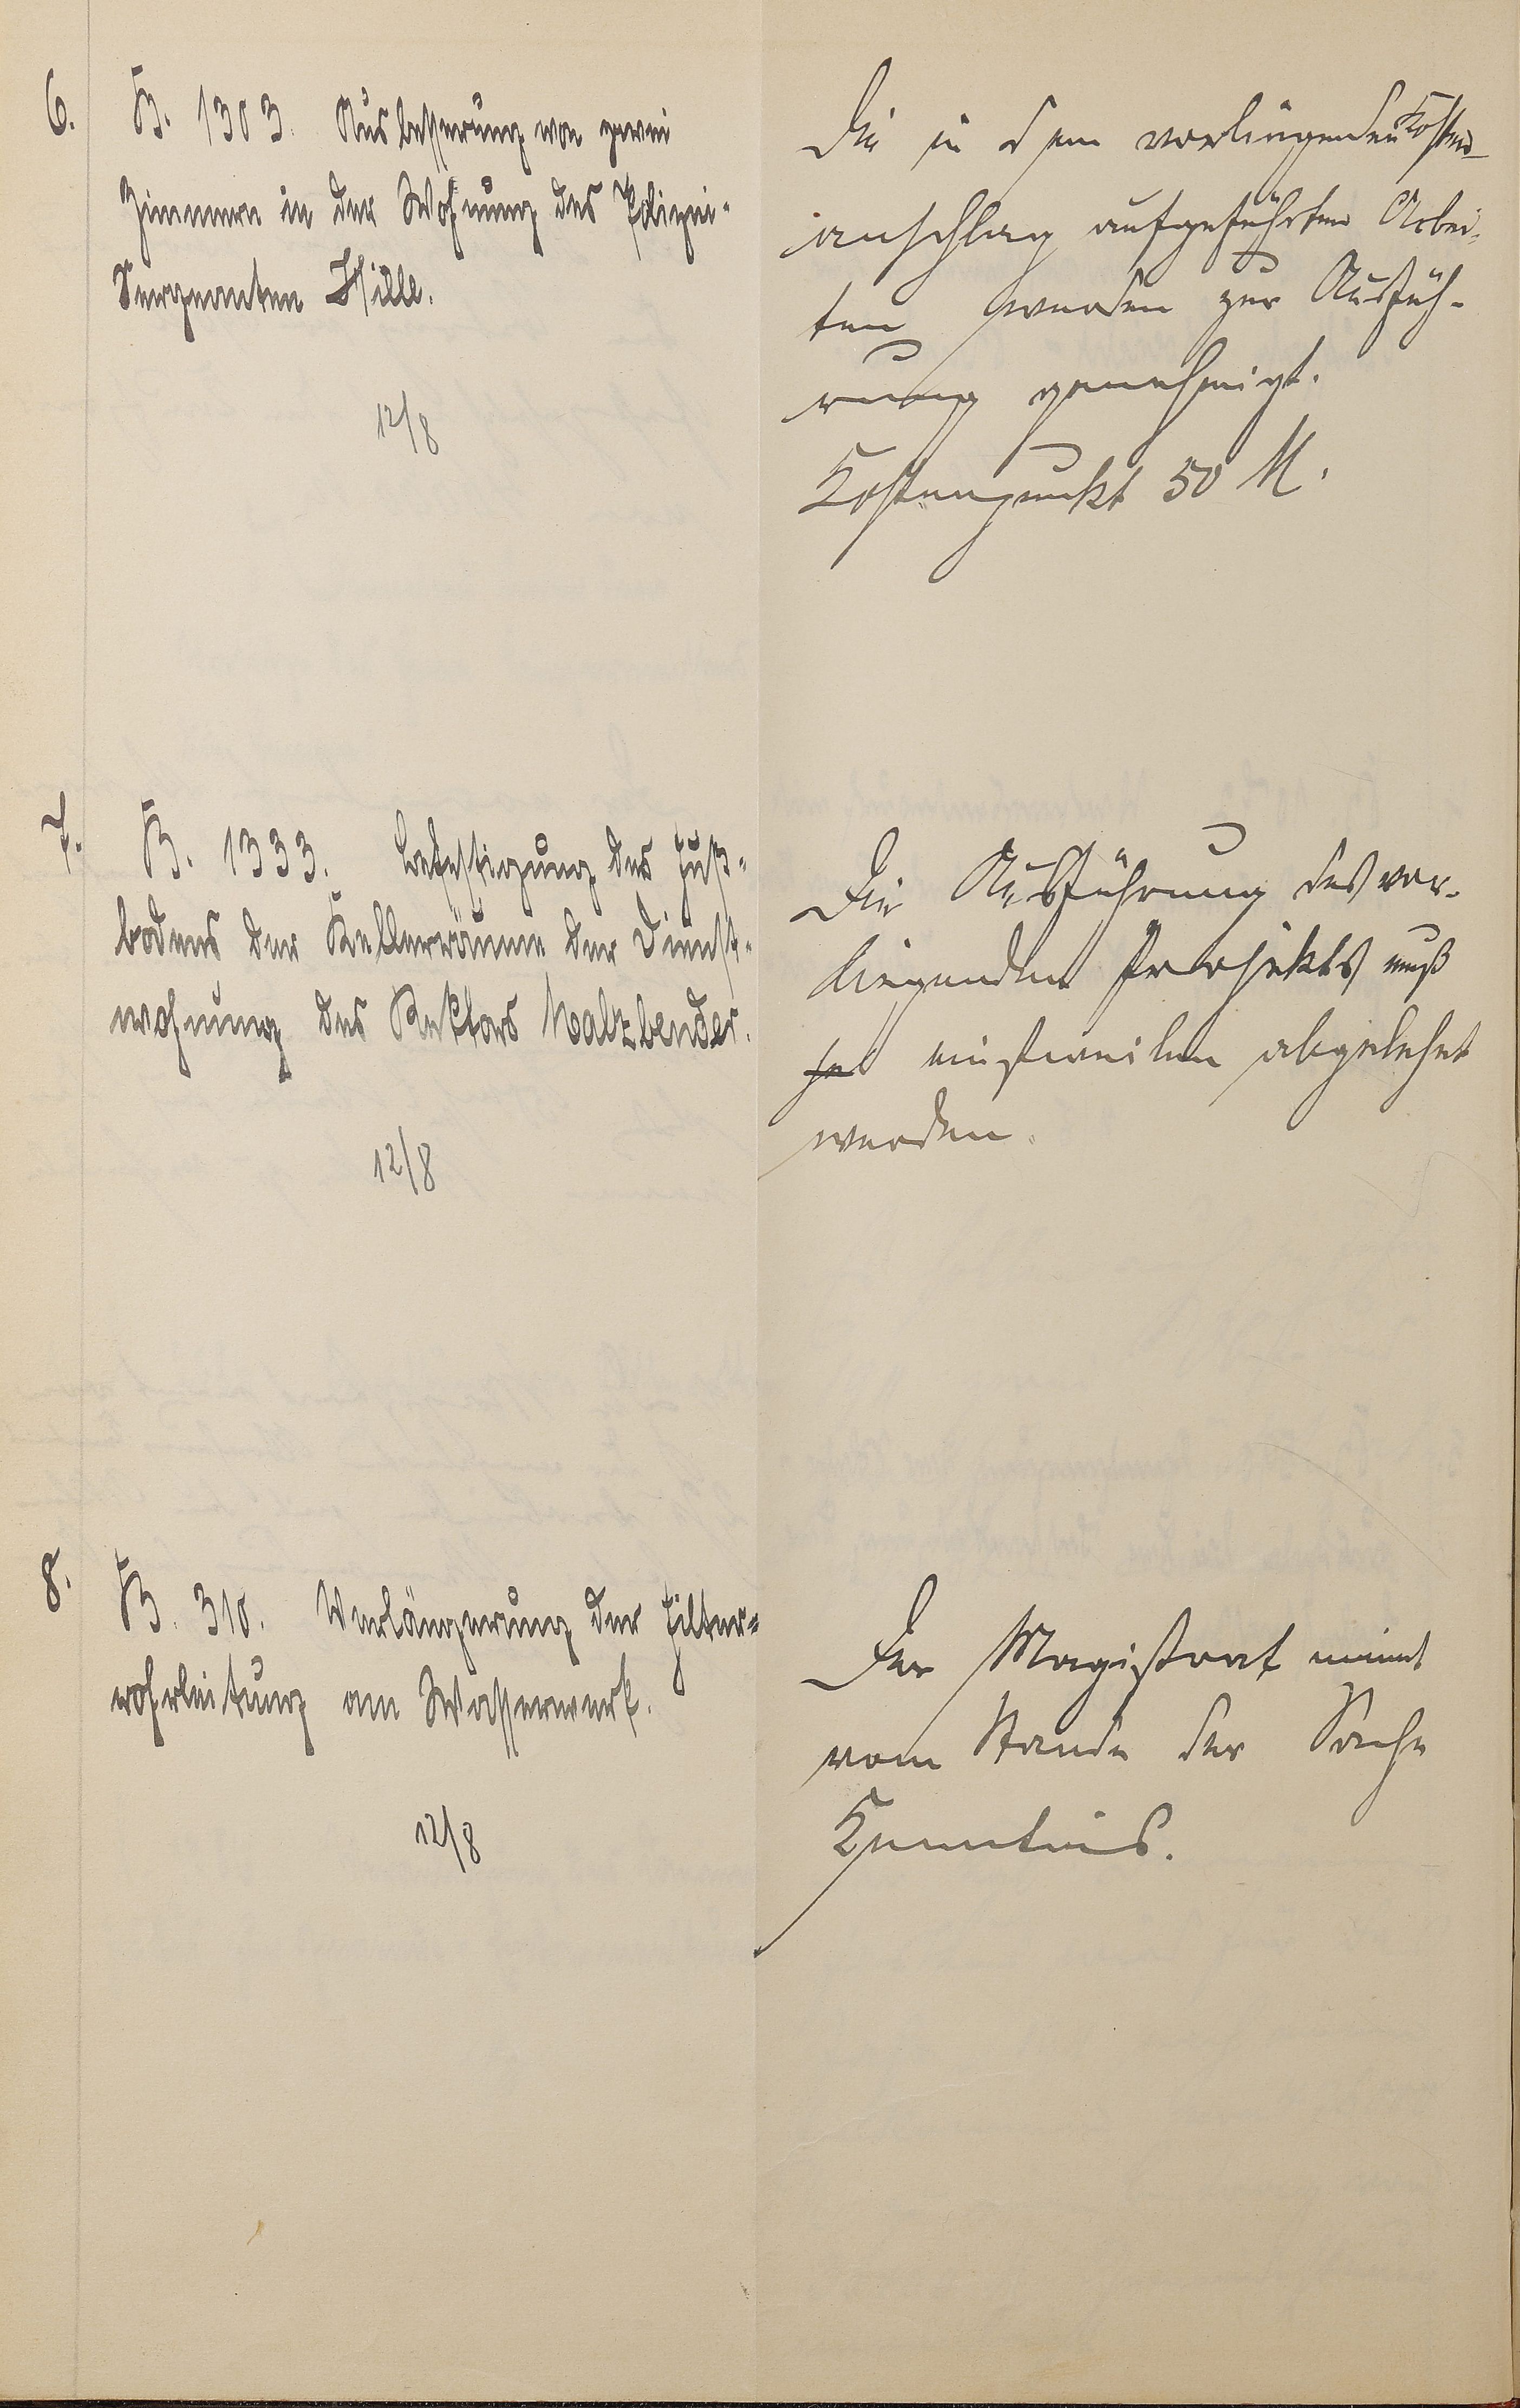 6. B. 1303. Ausbesserung von zwei
Zimmern in der Wohnung des Polizei-
Sergeanten Hille.
12/8
Die in dem vorliegenden Kosten-
anschlag aufgeführten Arbei-
ten werden zur Ausfüh-
rung genehmigt.
Kostenpunkt 50 M.
7. B. 1333. Befestigung des Fuß-
bodens der Kellerräume der Dienst-
wohnung des Rektors Malzbender.
12/8
Die Ausführung des vor-
liegenden Projekts muß
einstweilen abgelehnt
werden.
8. B. 310. Verlängerung der Filter-
rohrleitung am Wasserwerk.
12/8
Der Magistrat nimmt
vom Stande der Sache
Kenntnis.